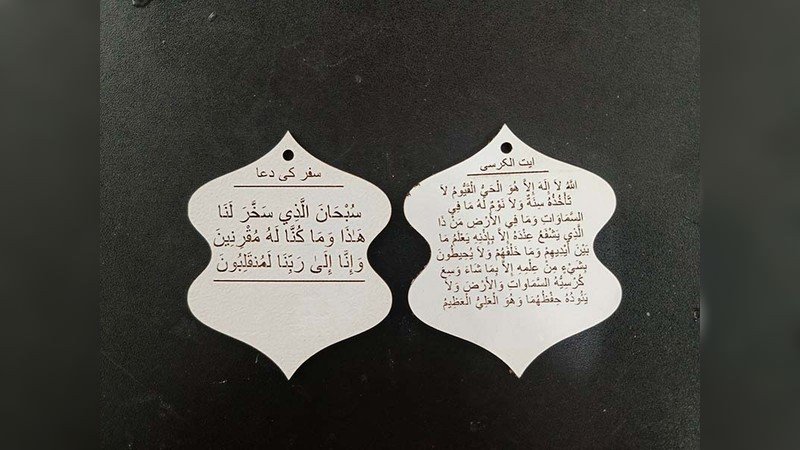 سفر کی دعا
سُبْحَانَ الَّذِي سَخَّرَ لَنَا
هَٰذَا وَمَا كُنَّا لَهُ مُقْرِنِينَ
وَإِنَّا إِلَىٰ رَبِّنَا لَمُنقَلِبُونَ
ایت الکرسی
اللهُ لاَ إِلَهَ إِلاَّ هُوَ الْحَيُّ الْقَيُّومُ لاَ
تَأْخُذُهُ سِنَةٌ وَلاَ نَوْمٌ لَهُ مَا فِي
السَّمَاوَاتِ وَمَا فِي الأَرْضِ مَنْ ذَا
الَّذِي يَشْفَعُ عِنْدَهُ إِلاَّ بِإِذْنِهِ يَعْلَمُ مَا
بَيْنَ أَيْدِيهِمْ وَمَا خَلْفَهُمْ وَلاَ يُحِيطُونَ
بِشَيْءٍ مِنْ عِلْمِهِ إِلاَّ بِمَا شَاءَ وَسِعَ
كُرْسِيُّهُ السَّمَاوَاتِ وَالأَرْضَ وَلاَ
يَئُودُهُ حِفْظُهُمَا وَهُوَ الْعَلِيُّ الْعَظِيمُ